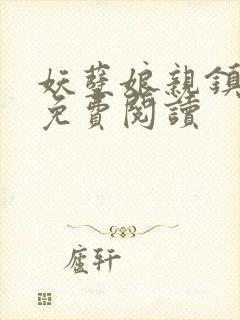 妖孽娘親鎮
免費閱讀
廬轩